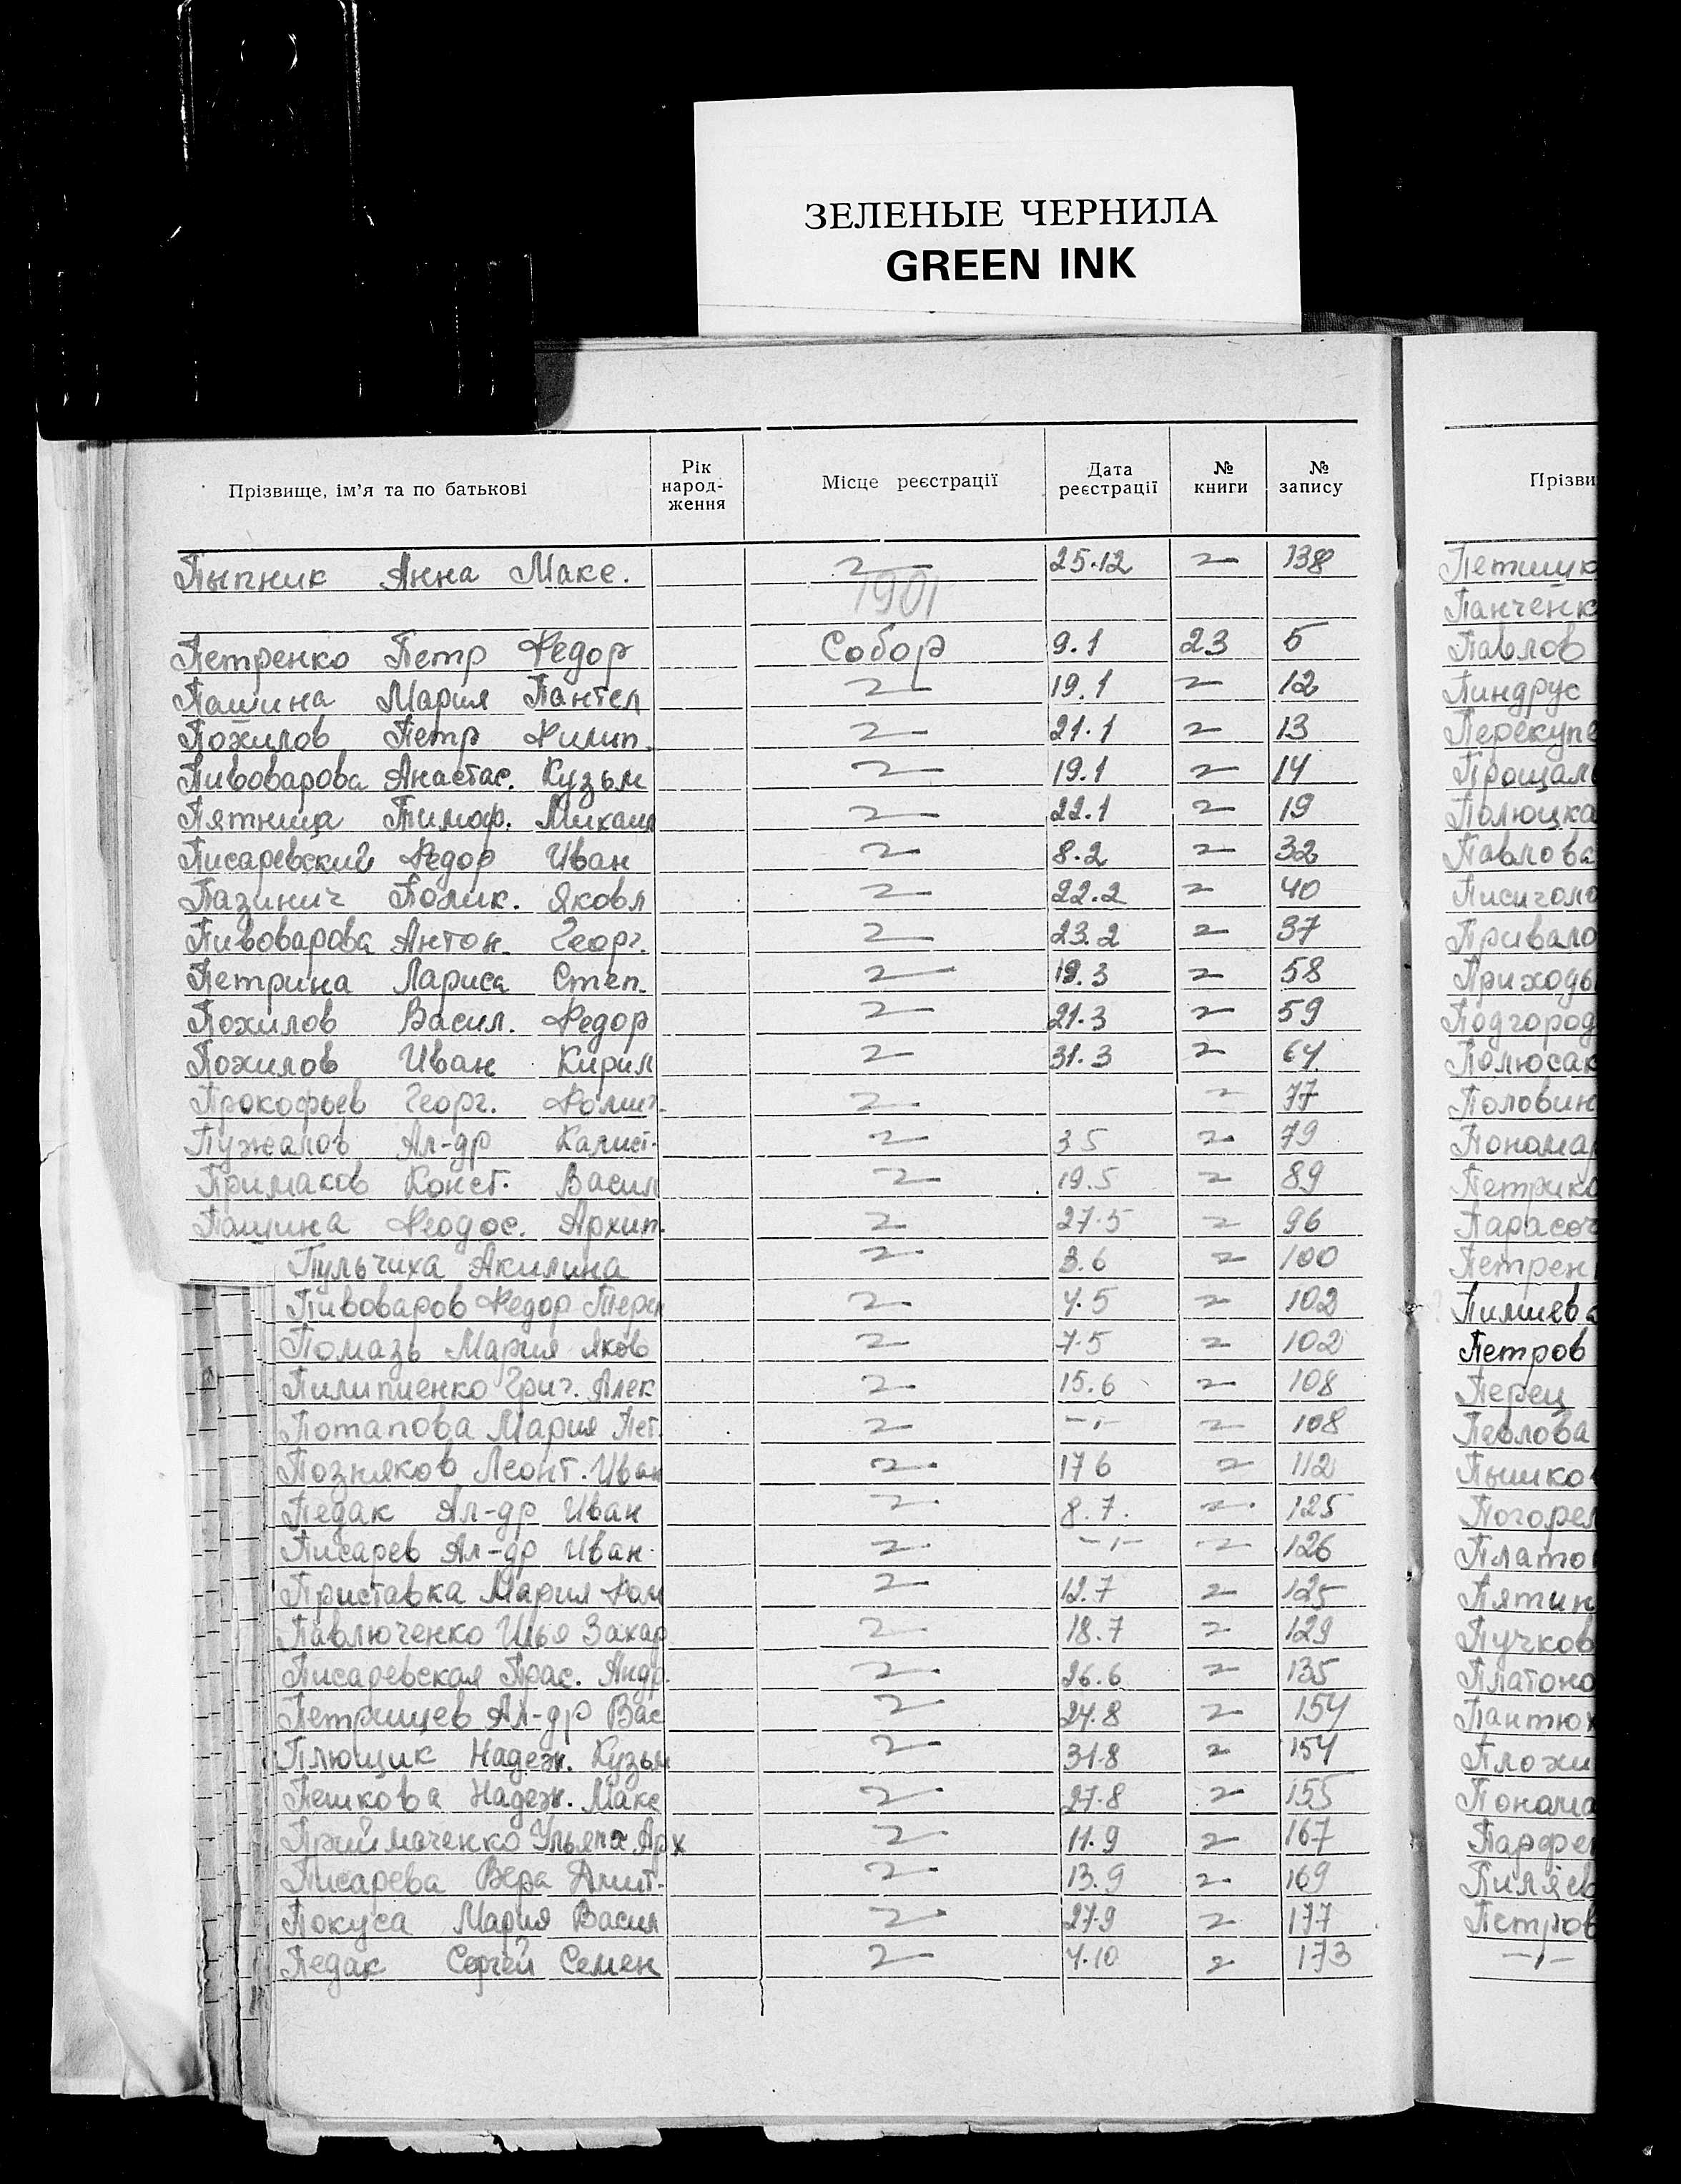 ЗЕЛЕНЫЕ ЧЕРНИЛА
GREEN INK
Прізвище, ім'я та по батькові Рік народ-ження Місце реєстрації Дата реєстрації № книги № запису
Пыпник Анна Макс. 25.12 138
1901
Петренко Петр Федор Собор 9.1 23 5
Пашина Мария Пантел 19.1 12
Похилов Петр Филип. 21.1 13
Пивоварова Анастас. Кузьм 19.1 14
Пятница Тимоф. Михаил 22.1 19
Писаревский Федор Иван 8.2 32
Пазинич Полик. Яковл 22.2 40
Пивоварова Антон. Георг. 23.2 37
Петрина Лариса Степ. 19.3 58
Похилов Васил. Федор 21.3 59
Похилов Иван Кирил 31.3 64
Прокофьев Георг. 77
Пужалов Ал-др Калист. 3 5 79
Примаков Конст. Васил 19.5 89
Пашина Феодос. Архип. 27.5 96
Пульчиха Акилина 3.6 100
Пивоваров Федор Терен 4.5 102
Помазь Мария Яков 7.5 102
Пилипиенко Григ. Алек 15.6 108
Потапова Мария Пет. -"- 108
Позняков Леонт. Иван 17 6 112
Педак Ал-др Иван 8.7. 125
Писарев Ал-др Иван. -"- 126
Приставка Мария Фом 12.7 125
Павлюченко Илья Захар 18.7 129
Писаревская Прас. Андр. 26.6 135
Петрищев Ал-др Вас 24.8 154
Плющик Надеж. Кузьм 31.8 154
Пешкова Надеж. Макс 27.8 155
Приймаченко Ульяна Арх 11.9 167
Писарева Вера Дмит. 13.9 169
Покуса Мария Васил 27.9 177
Педак Сергей Семен 4.10 173
Прізви
Панченк
Павлов
Пиндрус
Перекупе
Прощал
Полюцка
Павлова
Привало
Приходь
Подгород
Полюсак
Половин
Пономар
Петрико
Парасоч
Петрен
Петров
Перец
Павлова
Пышко
Погорел
Плато
Пятин
Пучков
Платоно
Пантюх
Плохи
Понома
Парфе
Петров
-"-